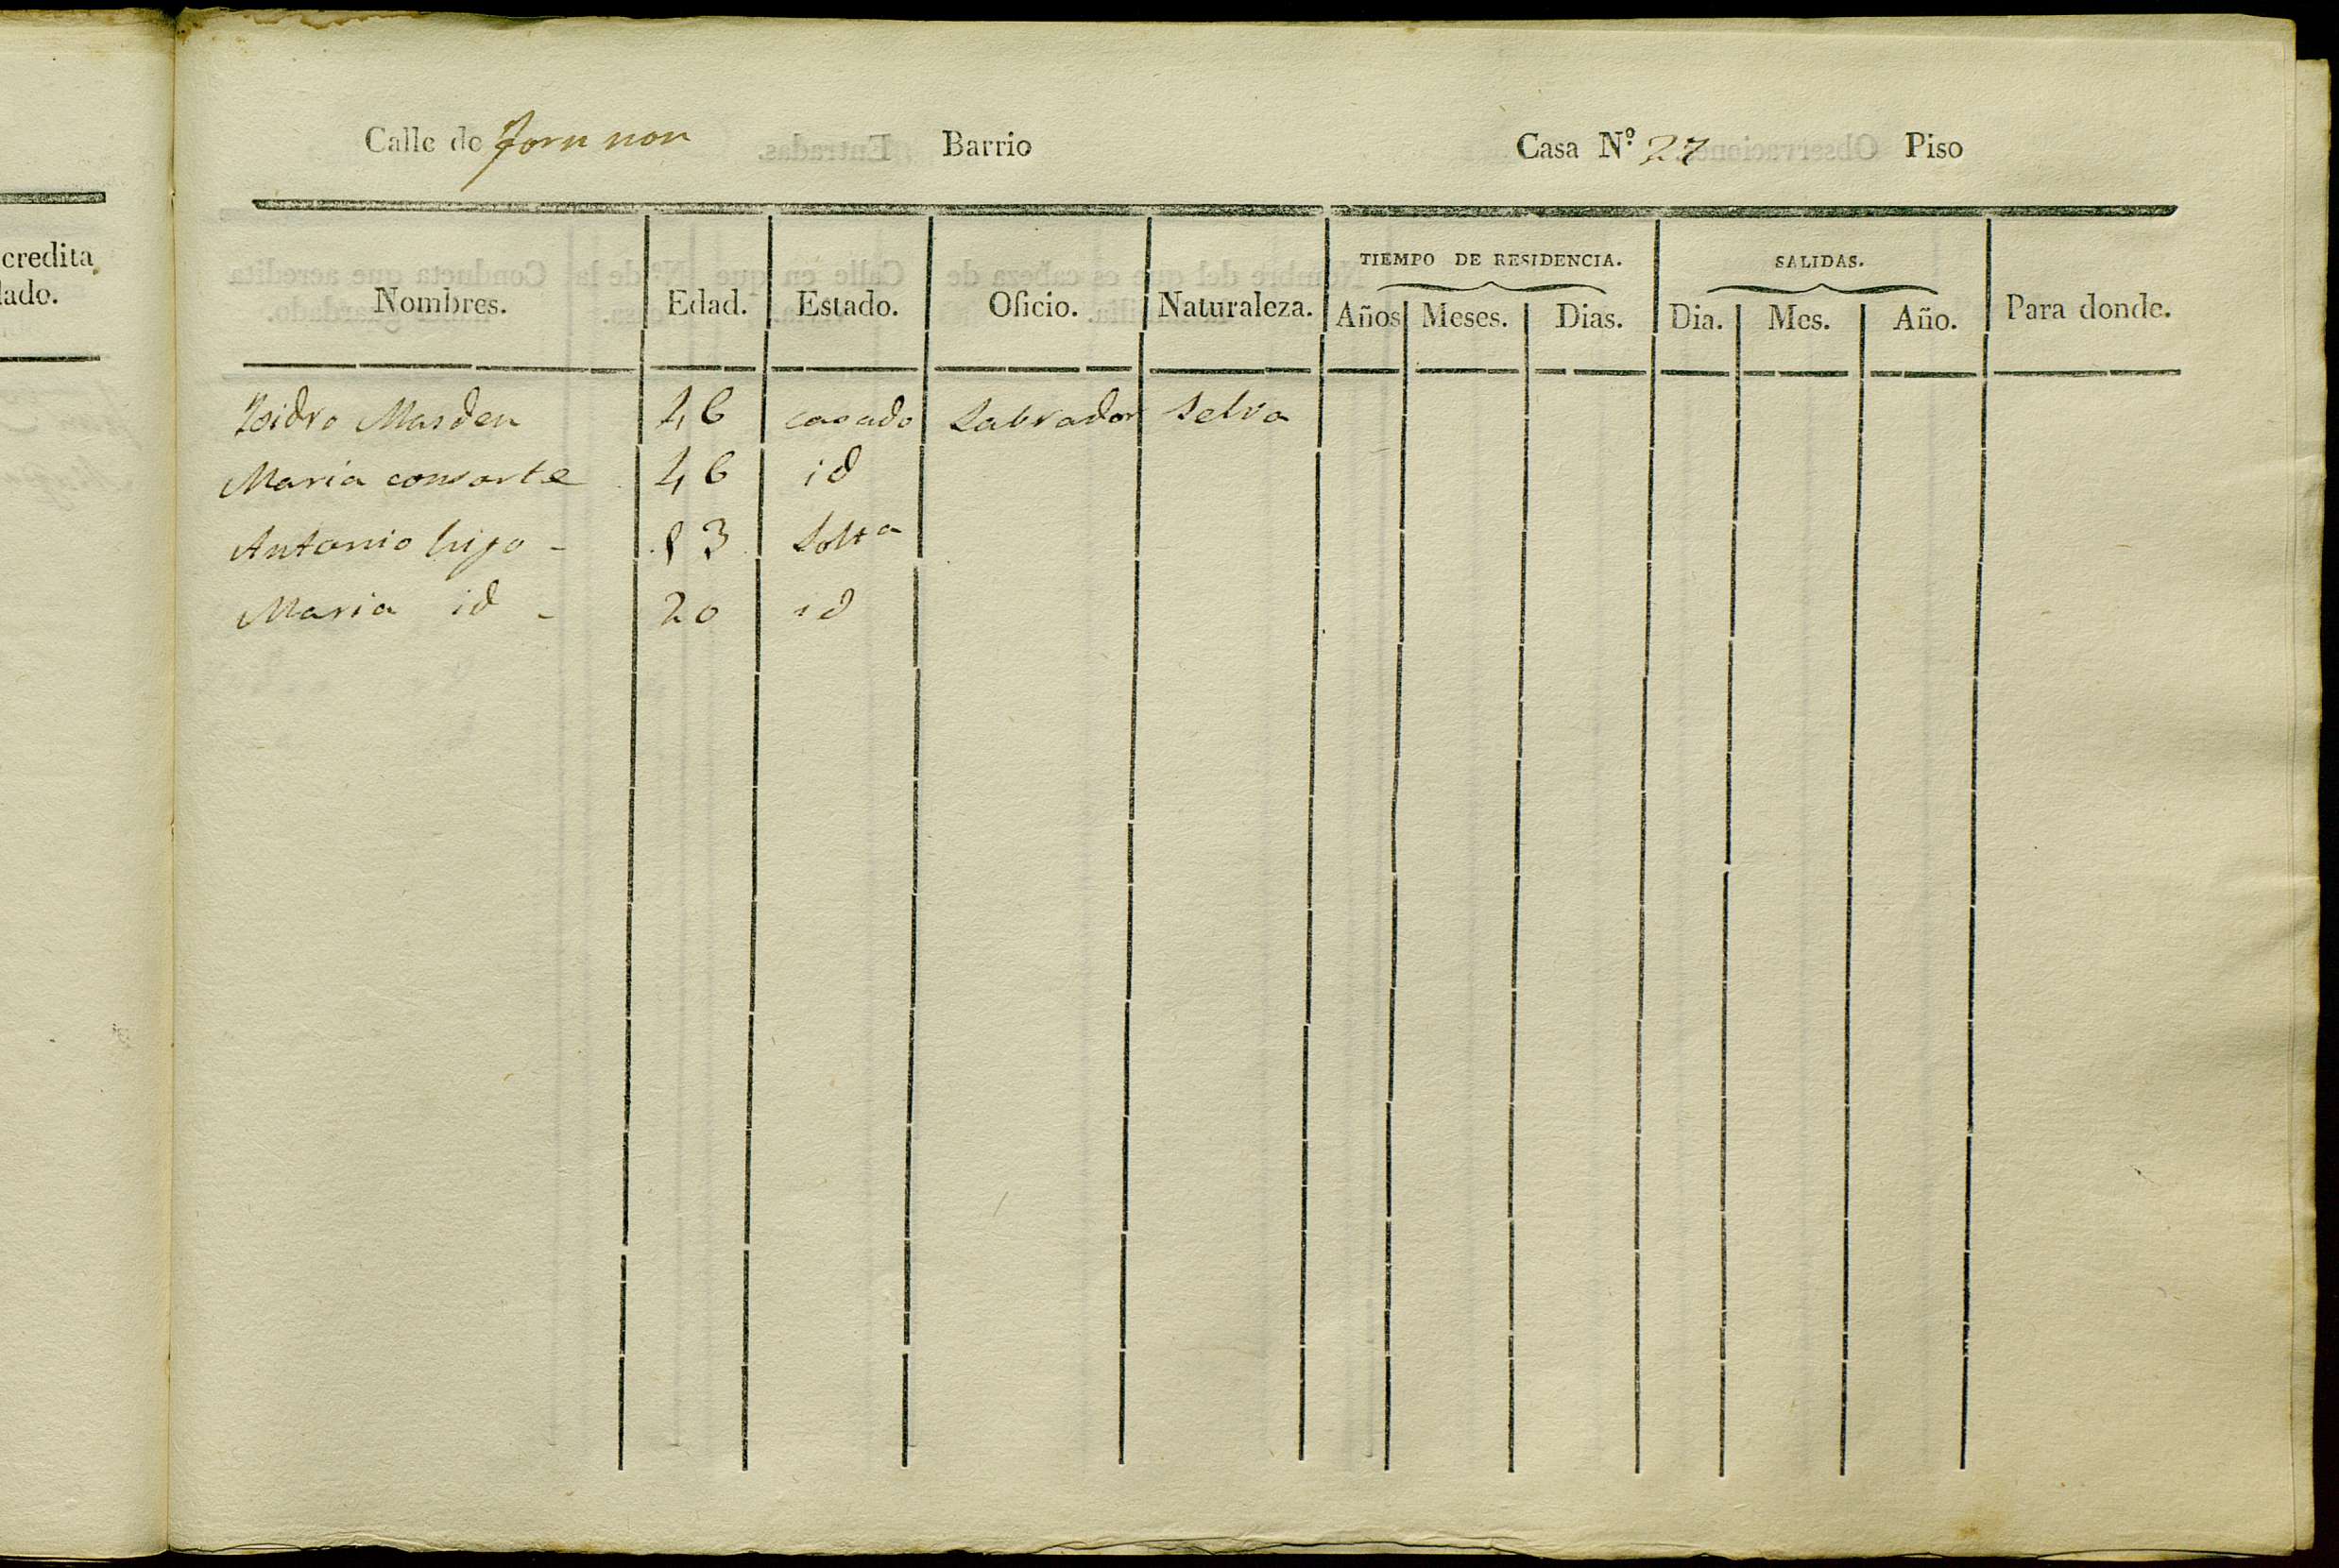 credita
dado.
Calle de Forn nou Barrio Casa N.º 27 Piso
Nombres. Edad. Estado. Oficio. Naturaleza. TIEMPO DE RESIDENCIA. Años Meses. Dias. SALIDAS. Dia. Mes. Año. Para donde.
Isidro Masdeu 46 casado Labrador Selva
Maria consorte 46 id
Antonio hijo - 13 Solto
Maria id - 20 id